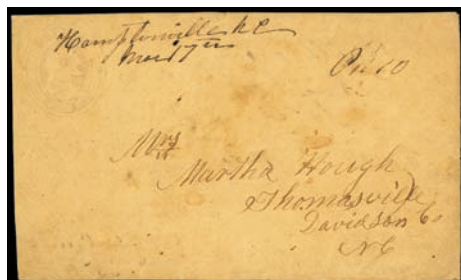 Hamptonville N.C.
Paid 10
Mrs
Martha Hough
Thomasville
Davidson Co
N C